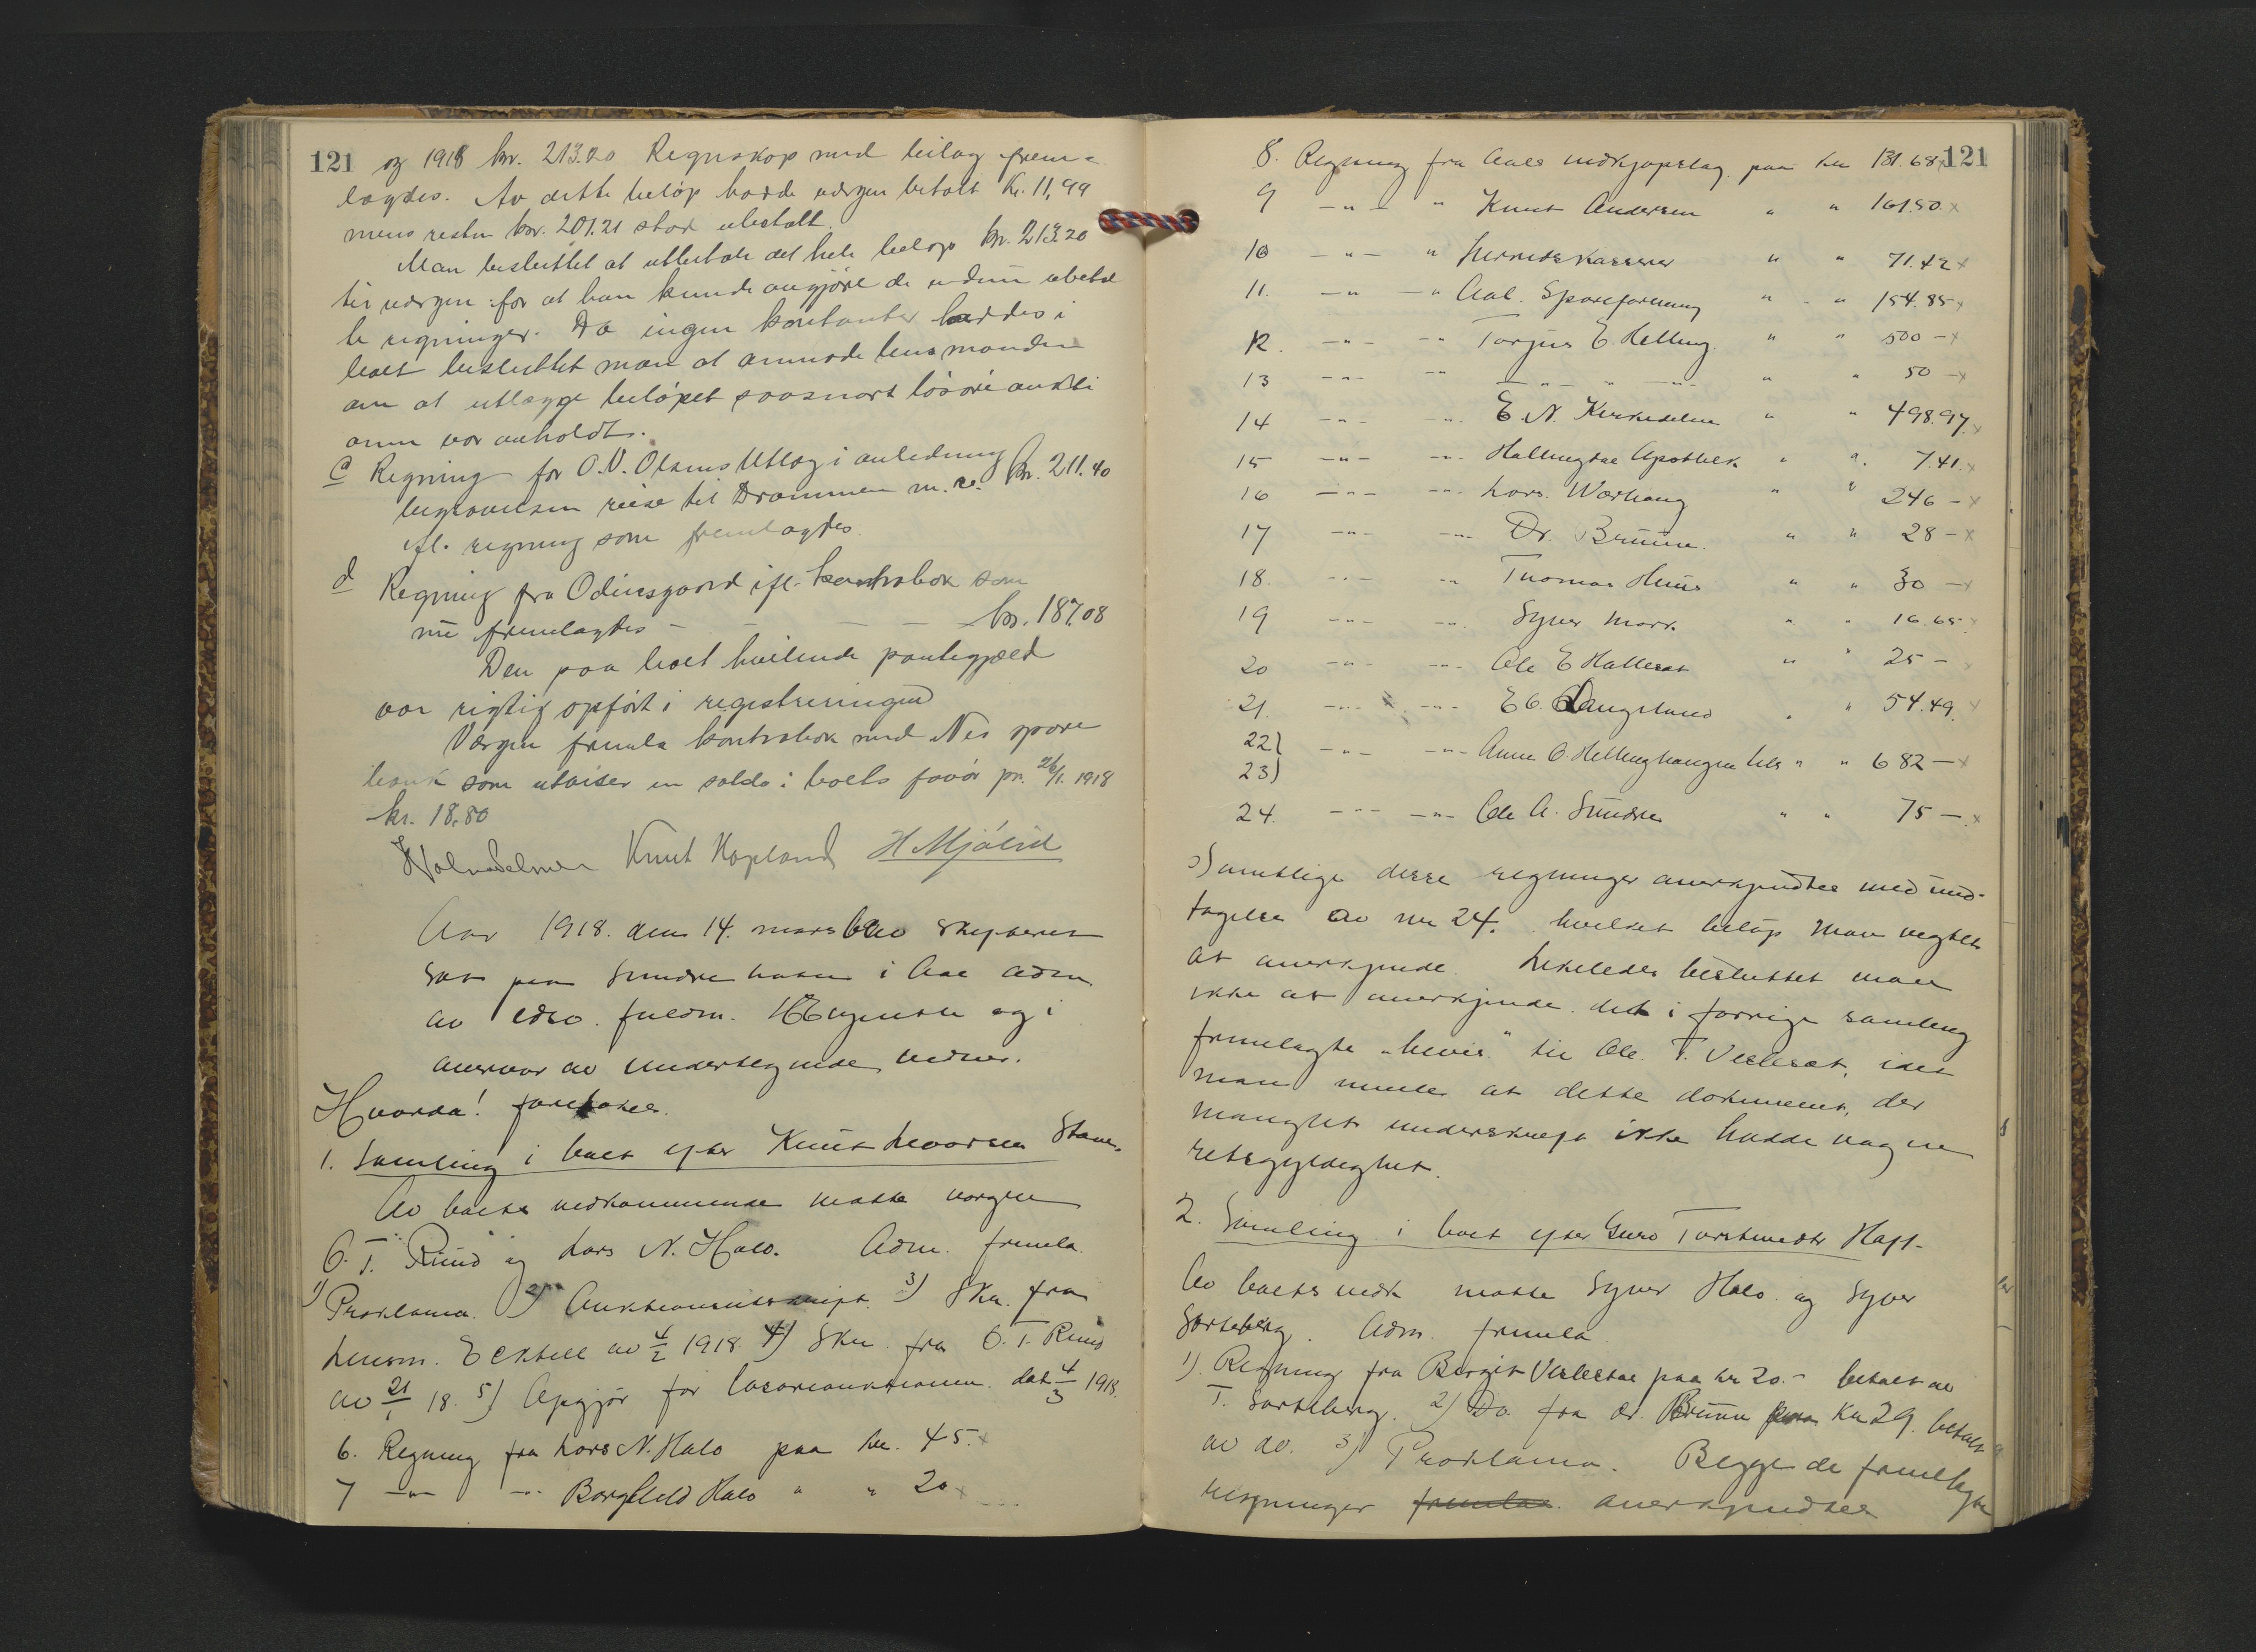 121 og 1918 kr. 213.20 Regnskap med bilag frem-
lagdes. Av dette beløp hadde vergen betalt kr. 11,99
mens resten kr. 201.21 stod ubetalt.
Man besluttet at utbetale det hele beløp kr. 213.20
til vergen for at han kunde avgjøre de endnu ubetal
te regninger. Da ingen kontanter haddes i
boet besluttet man at anmode lensmanden
om at utlægge beløpet saasnart løsøreauksti
onen var avholdt.
c Regning for O.V. Olsens Utlæg i anledning
begravelsen reise til Drammen m. v. kr. 211.40
ifl. regning som fremlagdes
d Regning fra Odinsgaard ifl. kontrabok som
nu fremlagdes - - - - kr. 187.08
Den paa boet hvilende pantegjæld
var rigtig opført i registreringen
Vergen fremla kontrabok med Nes spare
bank som utviser en saldo i boets favør pr. 26/1. 1918
kr. 18.80
Knut Kopland H. Mjølid
Aar 1918. den 14. mars blev skifteret
sat paa Sundre hotel i Aal adm
av edsv. fuldm. og i
overvær av undertegnede vidner.
Hvorda! foretokes.
1. Samling i boet efter Knut Levorsen
Av boets vedkommende møtte vergen
O. T. Ruud og Lars N. Halo. Adm. fremla
1) Proklama. 2) Auktionsutskrift. 3) Skr. fra
lensm. Ecktell av 4/2 1918. 4) Skr. fra O. T. Ruud
av 21/1 18. 5) Opgjør for løsøreauktionen. dat 4/3 1918.
6. Regning fra Lars N. Halo paa kr. 45. x
7 -"- -"- Borghild Halo " " 20 x
8. Regning fra Aals indkjøpslag paa kr 131.68 x 121
9 -"- " Knut Andersen " " 161.50 x
10 -"- " Herredskasserer " " 71.42 x
11. -"- -" Aal. Spareforening " " 154.85 x
12. -"- -" Torjus E. Helling " " 500 - x
13 -"- -" -"- " -"- " " 50 - x
14 -"- -". E. N. Kirkedelen " " 498.97 x
15 -"- -"- Hallingdal Apothek " ". 7.41. x
16 -"- -"- Lars. " " 246 - x
17 -"- -"- Dr. Bruun. " " 28 - x
18. -"- -" Thomas Huus " " 30 - x
19 -"- -"- Syver " " 16.65 x
20 -"- -"- Ole E " " 25 - x
21. -"- -"- E G. Langeland " " 54.49. x
22)
23) -"- -"- Anne O. Hellinghaugen " " 682 - x
24. -"- -"- Ole A. Sundre " " 75 - x
Samtlige disse regninger anerkjendtes med und-
tagelse av nr 24. hvilket beløp man negtet
at anerkjende. Likeledes besluttet man
ikke at anerkjende det i forrige samling
fremlagte "bevis" til Ole. T. Veslesæt, idet
man mente at dette dokument, der
manglet underskrift ikke hadde nogen
retsgyldighet.
2. Samling i boet efter Guro Torstensdtr
Av boets vedk møtte Syver Halo og Syver
Sorteberg. Adm. fremla
1). Regning fra Bergit paa kr 20.- betalt av
T. Sorteberg. 2) Do. fra dr. Bruun paa Kr 29. betalt
av do. 3) Proklama. Begge de fremlagte
regninger fremlaa. anerkjendtes